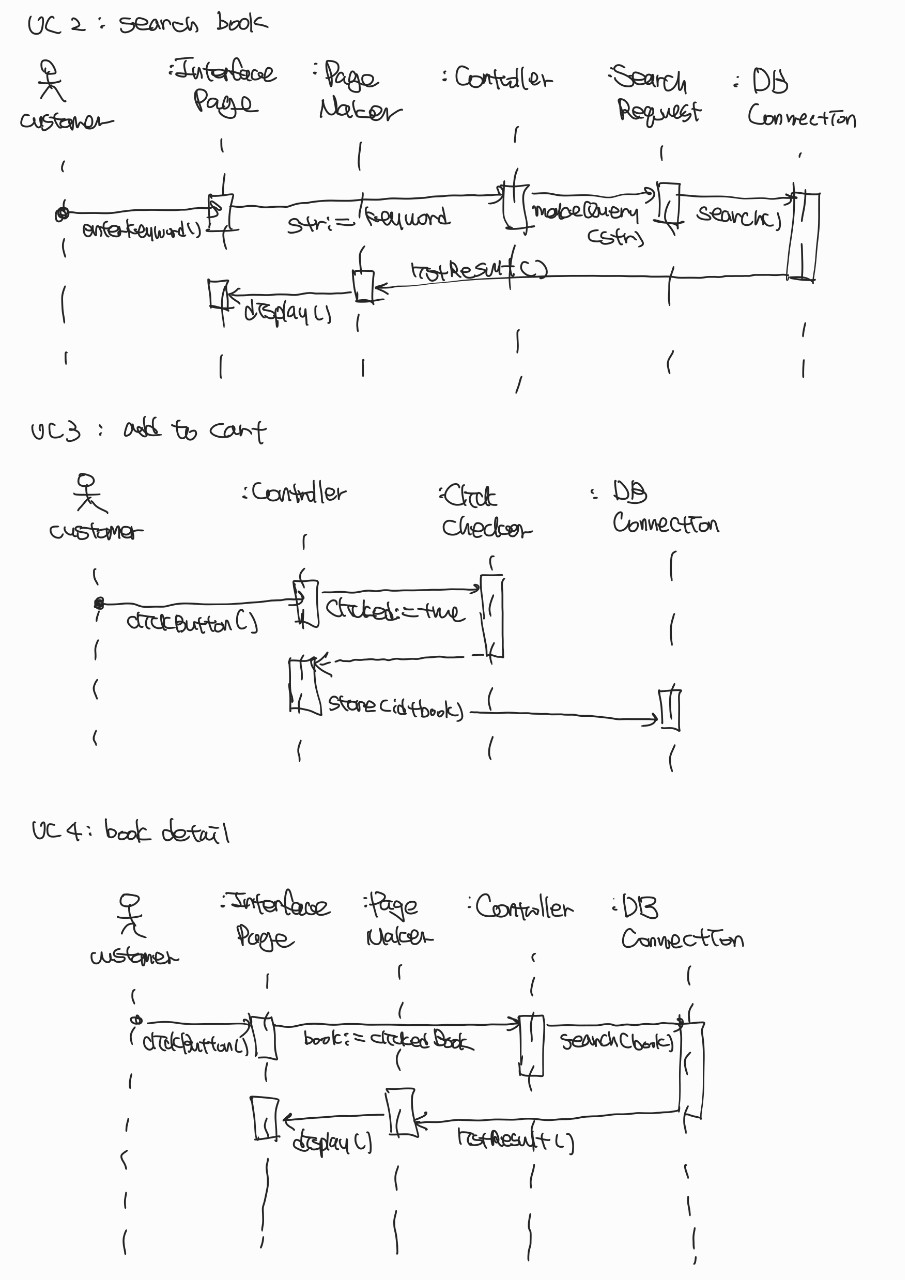 UC 2 : search book
customer
:Interface Page
:Page Maker
:Controller
:Search Request
: DB Connection
enterkeyword()
str:= keyword
makeQuery (str)
search()
listResult()
display()
UC3 : add to cart
customer
:Controller
:Click Checker
: DB Connection
clickButton()
Clicked:=true
store(id+book)
UC4: book detail
customer
:Interface Page
:Page Maker
:Controller
:DB Connection
clickButton()
book:=clickedBook
search(book)
listResult()
display()